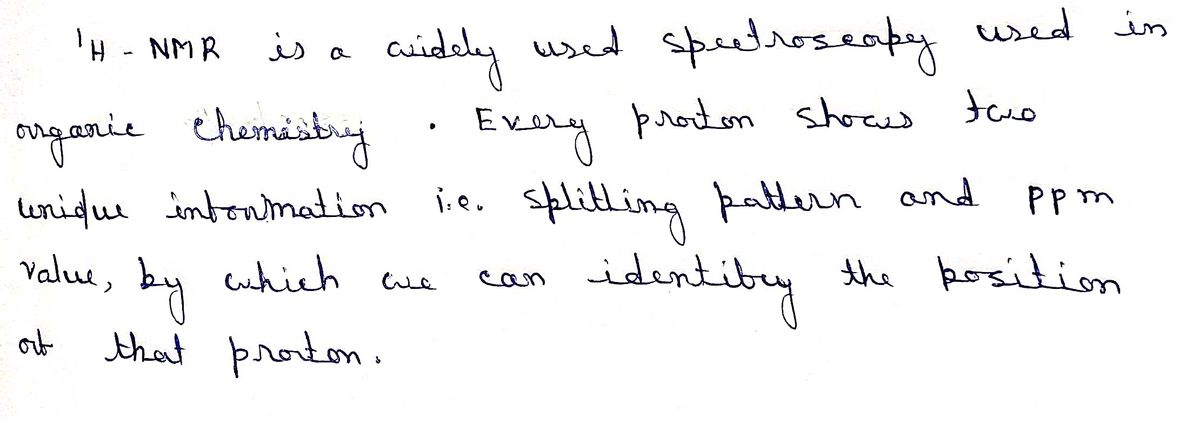 ¹H - NMR is a widely used spectroscopy used in
organic chemistry . Every proton shows two
unique information i.e. splitting pattern and ppm
value, by which we can identify the position
of that proton.